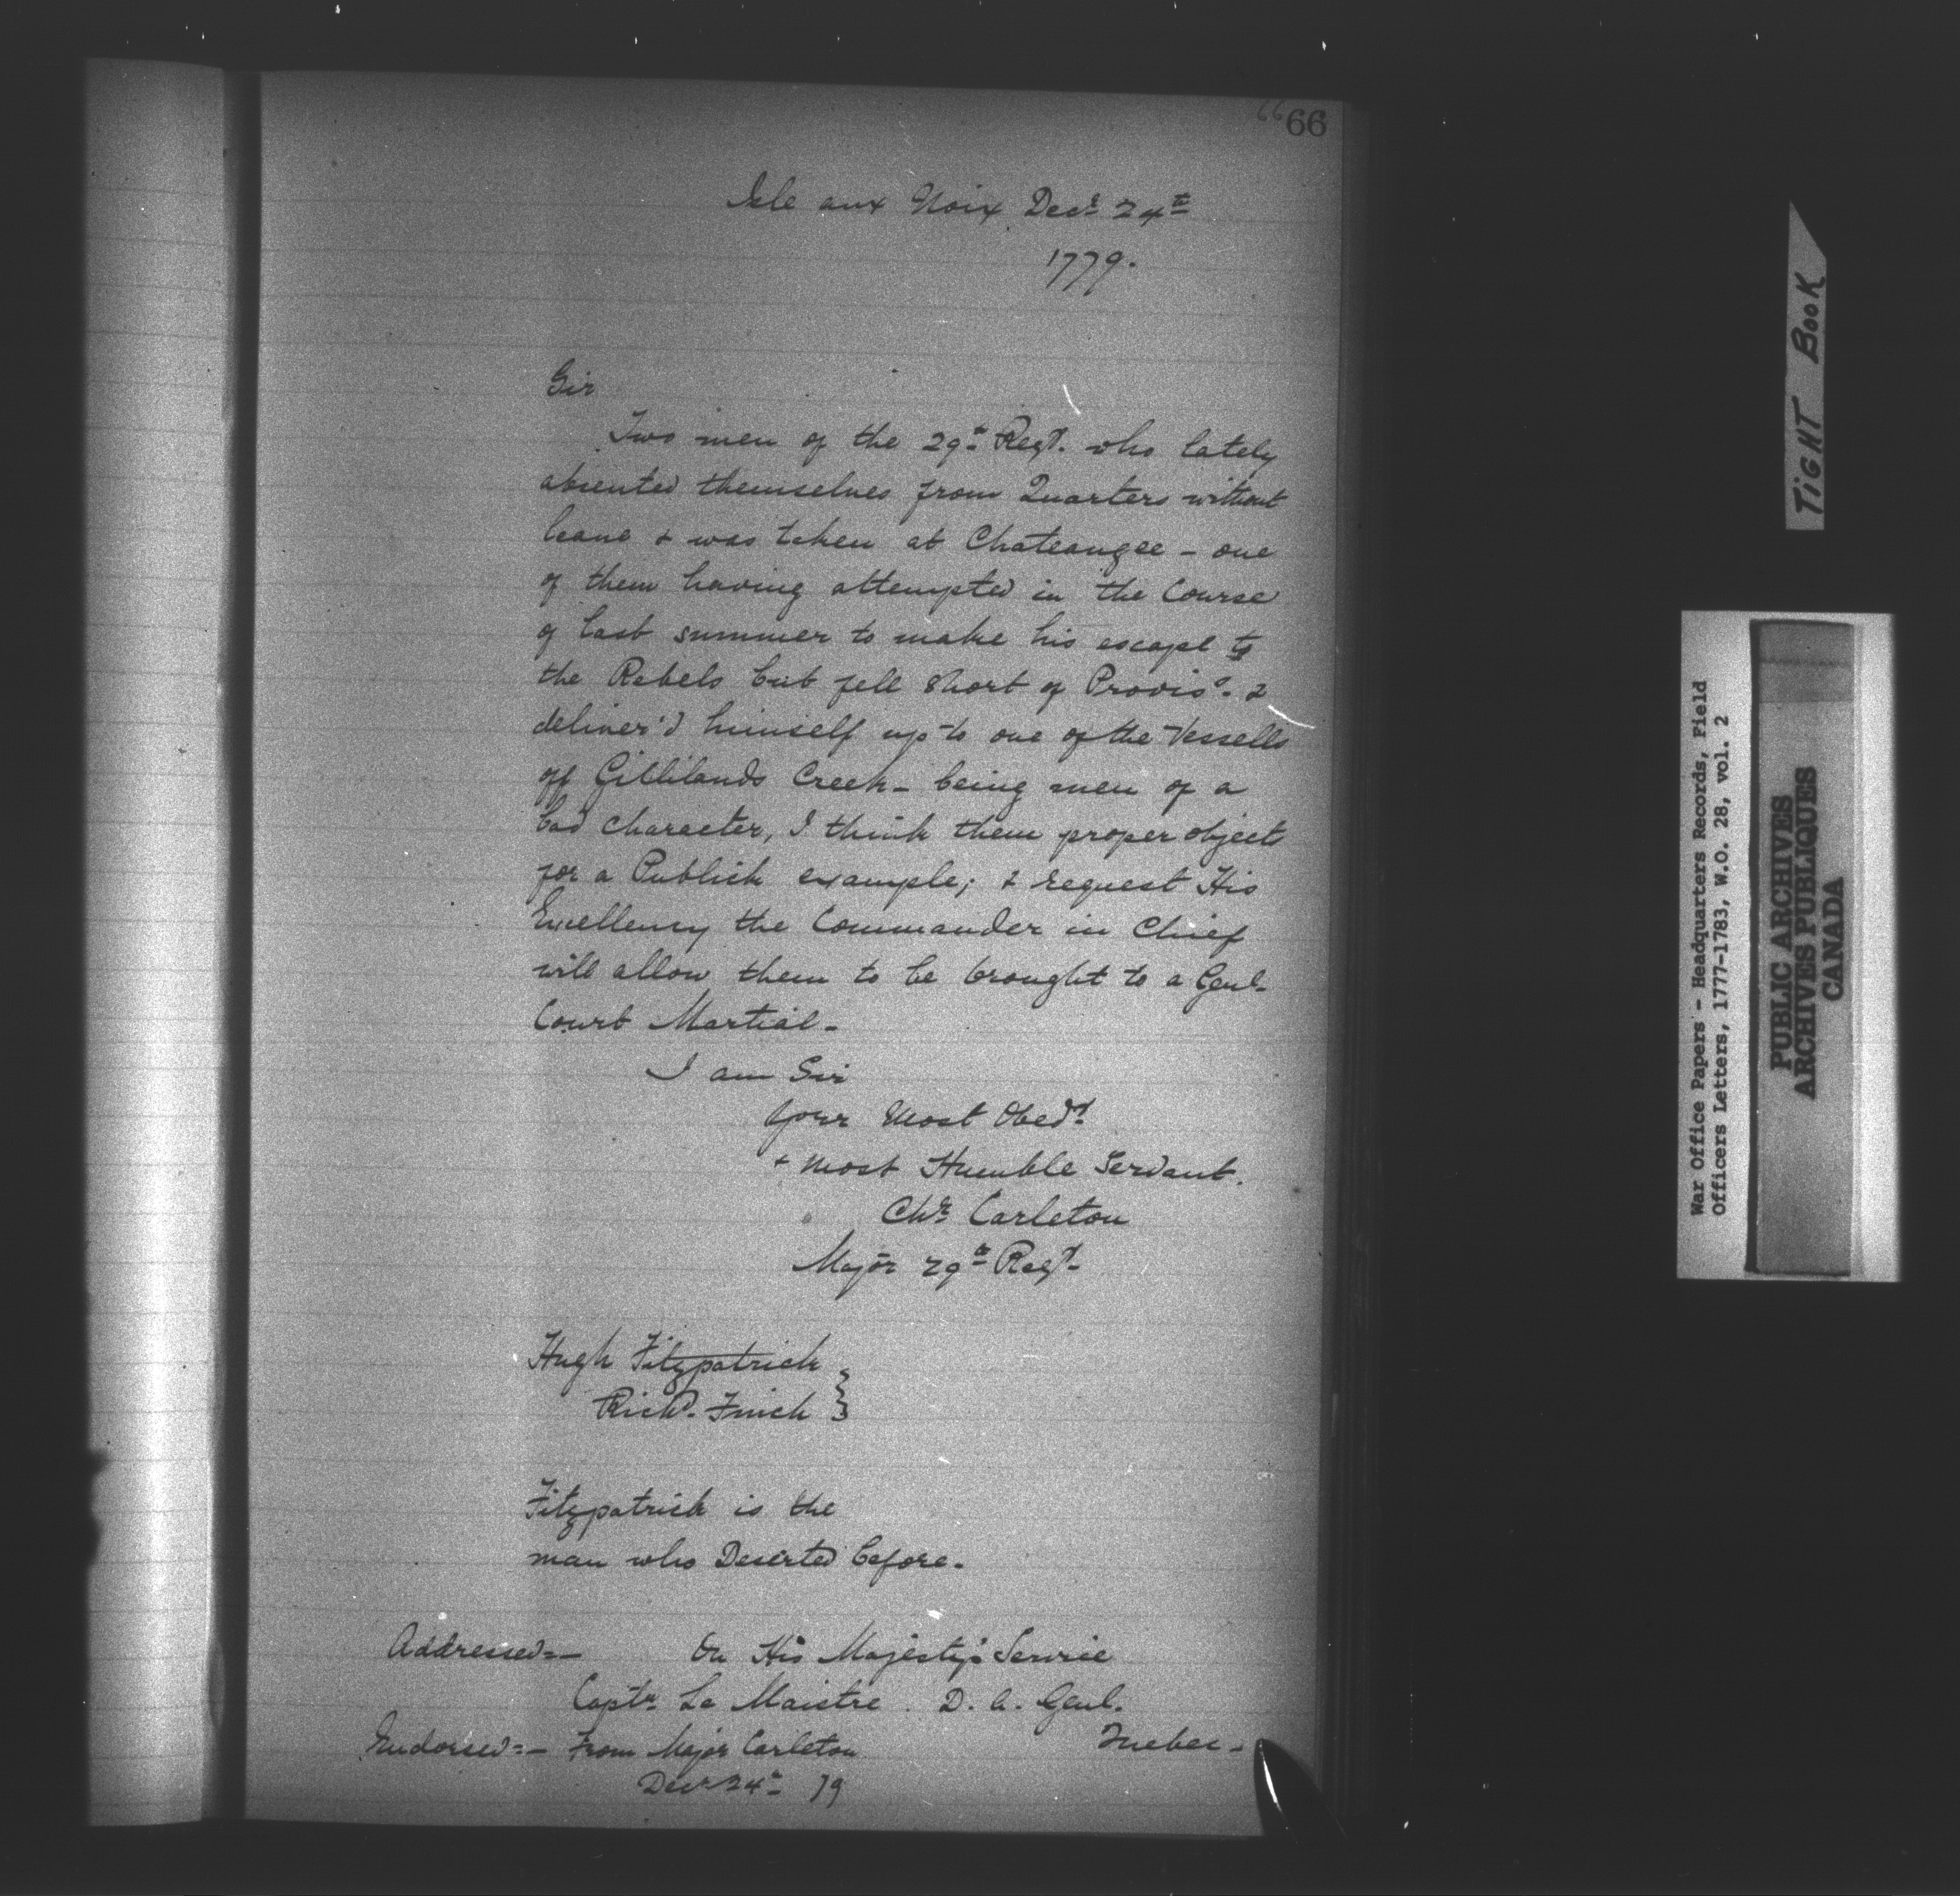 66 66
Isle aux Noix Decr 24th
1779.
Sir
Two men of the 29th Regt. who lately
absented themselves from Quarters without
leave & was taken at Chateaugee - one
of them having attempted in the Course
of last summer to make his escape to
the Rebels but fell short of Proviss. &
deliver'd himself up to one of the Vessells
off Gillilands Creek - being men of a
bad character, I think them proper objects
for a Publick example; & request His
Excellency the Commander in Chief
will allow them to be brought to a Genl.
Court Martial -
I am Sir
Your Most Obedt
& most Humble Servant.
Chr. Carleton
Major 29th Regt.
Hugh Fitzpatrick }
Richd. Finch }
Fitzpatrick is the
man who Deserted before.
Addressed:- On His Majesty's Service
Captn. Le Maistre D. A. Genl.
Quebec -
Endorsed:- From Major Carleton
Decr 24th 79
TIGHT BOOK
War Office Papers - Headquarters Records, Field
Officers Letters, 1777-1783, W.O. 28, vol. 2
PUBLIC ARCHIVES
ARCHIVES PUBLIQUES
CANADA